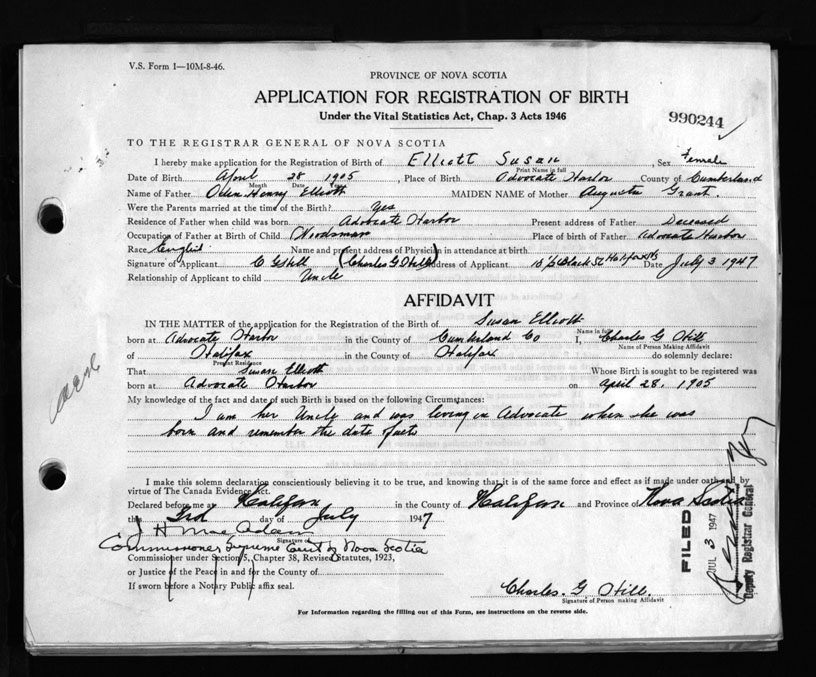 V.S. Form 1—10M-8-46.
PROVINCE OF NOVA SCOTIA
APPLICATION FOR REGISTRATION OF BIRTH
Under the Vital Statistics Act, Chap. 3 Acts 1946
990244
TO THE REGISTRAR GENERAL OF NOVA SCOTIA
I hereby make application for the Registration of Birth of Elliott Susan, Sex Female
Print Name in full
Date of Birth April 28 1905, Place of Birth Advocate Harbor County of Cumberland
Month Date
Name of Father Henry Elliott MAIDEN NAME of Mother Augusta Grant.
Were the Parents married at the time of the Birth? Yes
Residence of Father when child was born Advocate Harbor Present address of Father Deceased
Occupation of Father at Birth of Child Woodsman Place of birth of Father Advocate Harbor
Race English Name and present address of Physician in attendance at birth
Signature of Applicant C G Hill (Charles G Hill) Address of Applicant Black St Halifax NS Date July 3 1947
Relationship of Applicant to child Uncle
AFFIDAVIT
IN THE MATTER of the application for the Registration of the Birth of Susan Elliott
Name in full
born at Advocate Harbor in the County of Cumberland Co I, Charles G Hill
Name of Person Making Affidavit
of Halifax in the County of Halifax do solemnly declare:
Present Residence
That Susan Elliott Whose Birth is sought to be registered was
born at Advocate Harbor on April 28, 1905
My knowledge of the fact and date of such Birth is based on the following Circumstances:
I am her Uncle and was living in Advocate when she was
born and remember the date of
I make this solemn declaration conscientiously believing it to be true, and knowing that it is of the same force and effect as if made under oath and by
virtue of The Canada Evidence Act.
Declared before me at Halifax in the County of Halifax and Province of Nova Scotia
this 3rd day of July 1947
J H Mac Adam
Signature of
Commissioner Supreme Court of Nova Scotia
Commissioner under Section 5, Chapter 38, Revised Statutes, 1923,
or Justice of the Peace in and for the County of
If sworn before a Notary Public affix seal.
Charles. G. Hill.
Signature of Person making Affidavit
For Information regarding the filling out of this Form, see instructions on the reverse side.
FILED
JUL 3 1947
Deputy Registrar General